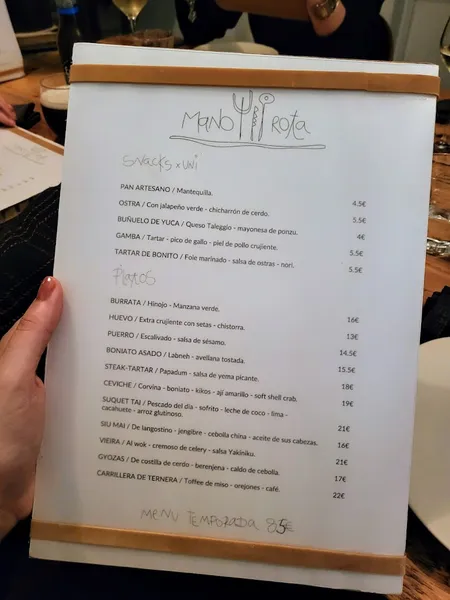 MANO ROTA
SNACKS x UNI
PAN ARTESANO / Mantequilla. 4.5€
OSTRA / Con jalapeño verde - chicharrón de cerdo. 5.5€
BUÑUELO DE YUCA / Queso Taleggio - mayonesa de ponzu. 4€
GAMBA / Tartar - pico de gallo - piel de pollo crujiente. 5.5€
TARTAR DE BONITO / Foie marinado - salsa de ostras - nori. 5.5€
PLATOS
BURRATA / Hinojo - Manzana verde. 16€
HUEVO / Extra crujiente con setas - chistorra. 13€
PUERRO / Escalivado - salsa de sésamo. 14.5€
BONIATO ASADO / Labneh - avellana tostada. 15.5€
STEAK-TARTAR / Papadum - salsa de yema picante. 18€
CEVICHE / Corvina - boniato - kikos - ají amarillo - soft shell crab. 19€
SUQUET TAI / Pescado del día - sofrito - leche de coco - lima -
cacahuete - arroz glutinoso. 21€
SIU MAI / De langostino - jengibre - cebolla china - aceite de sus cabezas. 16€
VIEIRA / Al wok - cremoso de celery - salsa Yakiniku. 21€
GYOZAS / De costilla de cerdo - berenjena - caldo de cebolla. 17€
CARRILLERA DE TERNERA / Toffee de miso - orejones - café. 22€
MENU TEMPORADA 85€